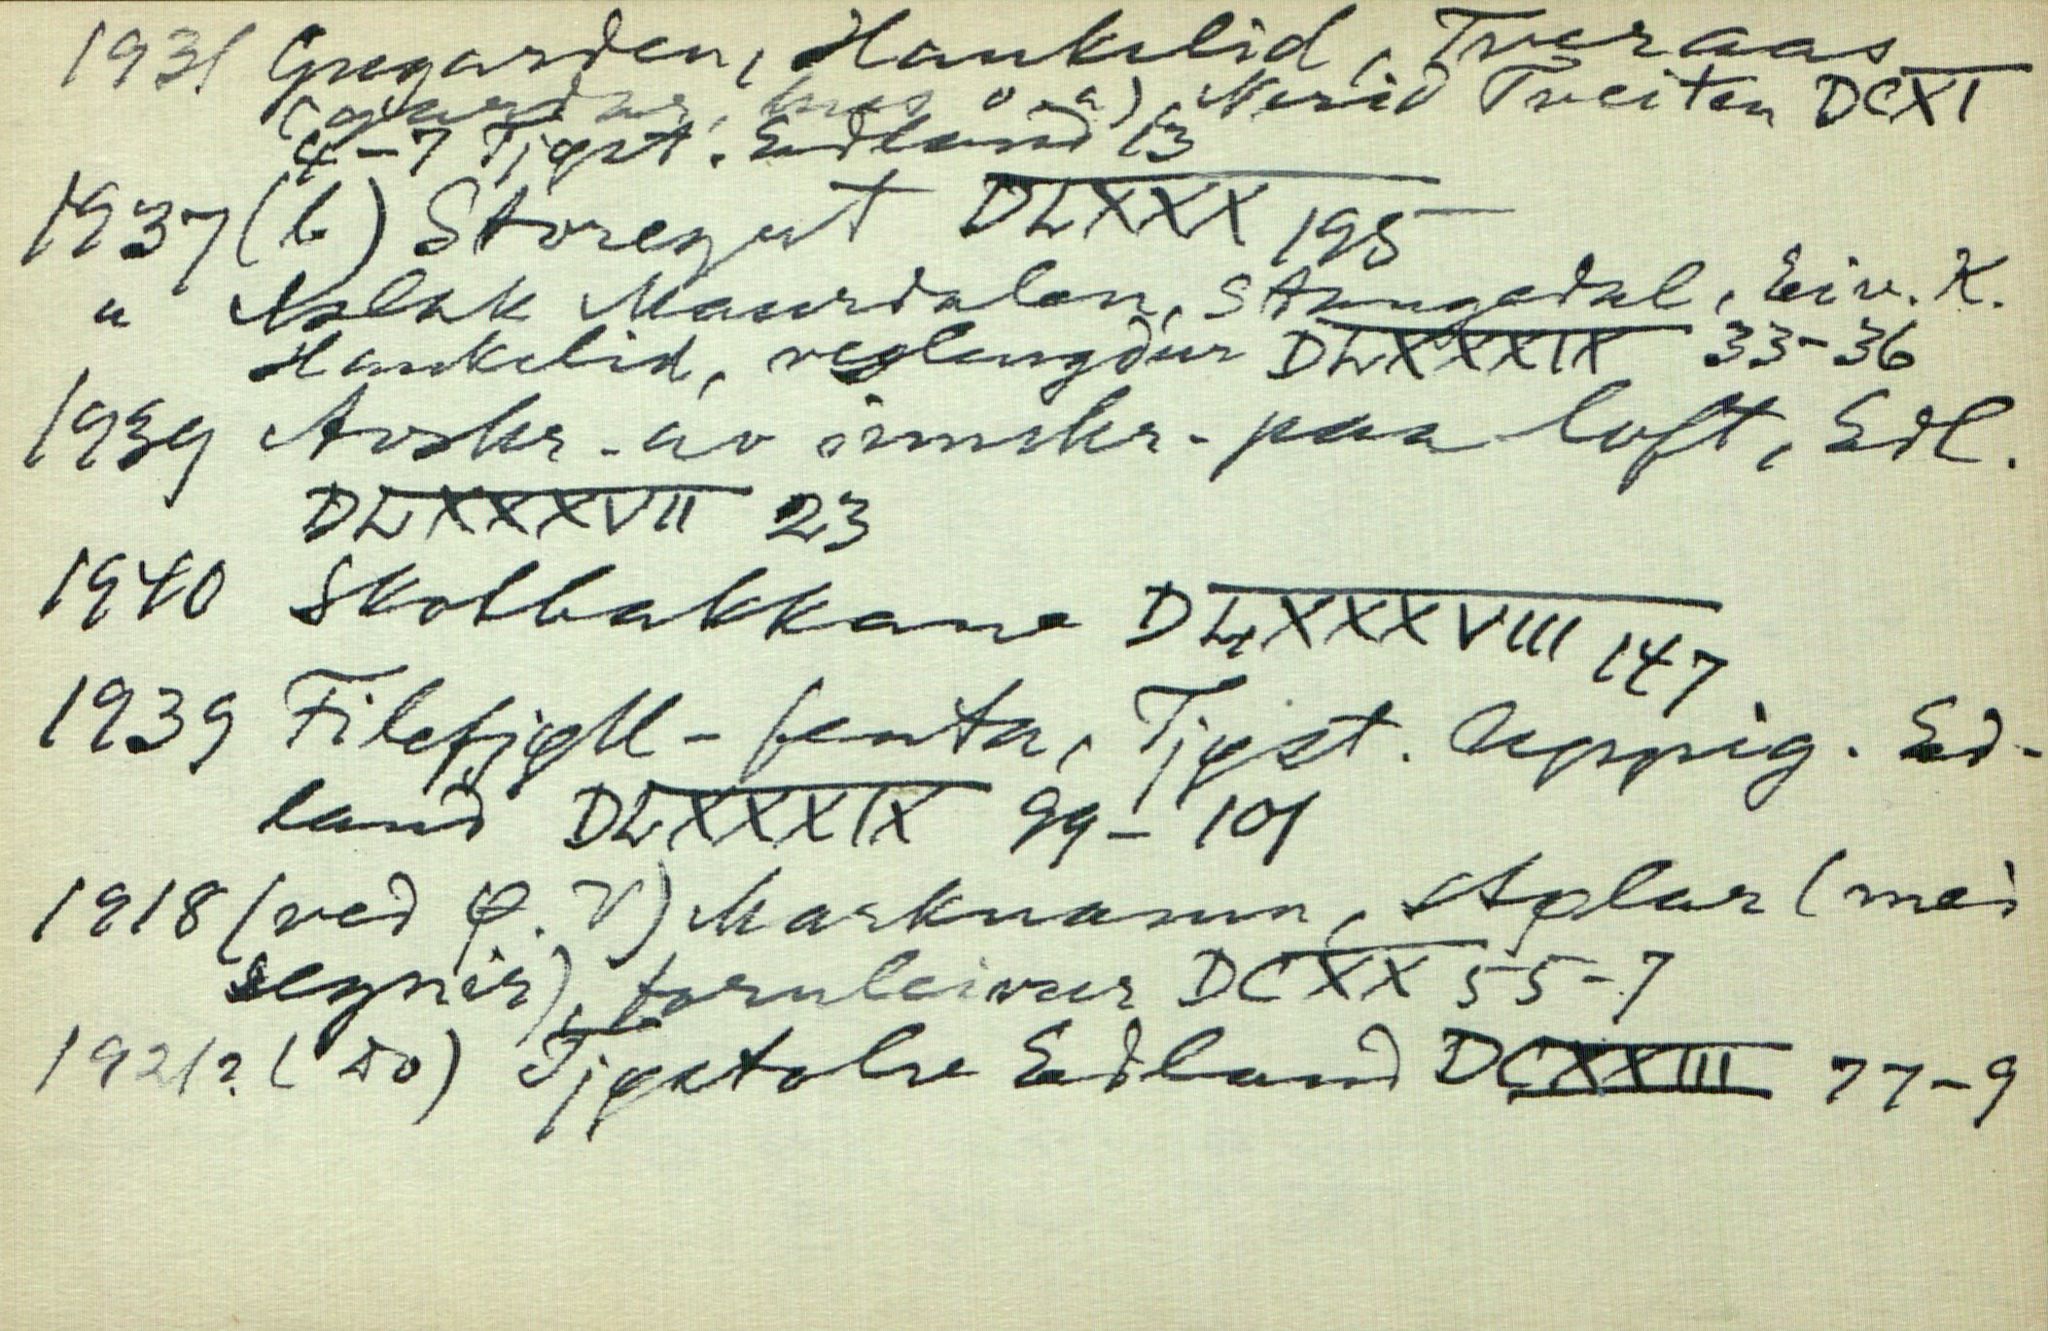 1931 Gregarden, Haukelid, Tveraas
(gardar, hus o.a), Nerid Tveiten DCXI
4-7 Tjøst. Edland 13
1937 (b) Storegut DLXXX 195
" Aslak Maurdalen, Staungedal, Eiv. K.
Haukelid, veglengdur DLXXXIX 33-36
1939 Avskr. av innskr. paa loft, Edl.
DLXXXVII 23
1940 Skotbakkane DLXXXVIII 147
1939 Filefjøll-fenta, Tjøst. Uppig. Ed-
land DLXXXIX 99-101
1918 (ved Ø. V) Marknamn, støplar (mei
segnir), fornleivur DCXX 55-7
1921? (do) Tjøstolre Edland DCXXIII 77-9